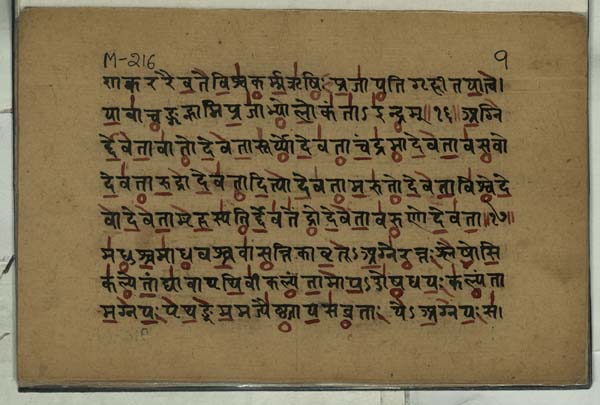 M-216 १
शाक्वररैवतेविश्वकर्म्मऋषिःप्रजापतिगृहीतयात्वे।
यावाचङ्गृह्णामिप्रजाभ्योलोकंताऽइन्द्रम्॥१६॥अग्नि
र्द्देवतावातोदेवतासूर्य्योदेवताचंद्रमादेवतावसवो
देवतारुद्रोदेवतादित्यादेवतामरुतोदेवताविश्वेदे
वादेवताबृहस्पतिर्द्देवतेंद्रोदेवतावरुणोदेवता॥१७॥
मधुश्चमाधवश्चवासन्तिकावृतूऽअग्नेरन्तःश्लेषोसि
कल्पेतांद्यावापृथिवीकल्पंतामापऽओषधयःकल्पंता
मग्नयःपृथङ्ममज्यैष्ठ्यायसव्रताः येऽअग्नयःस।